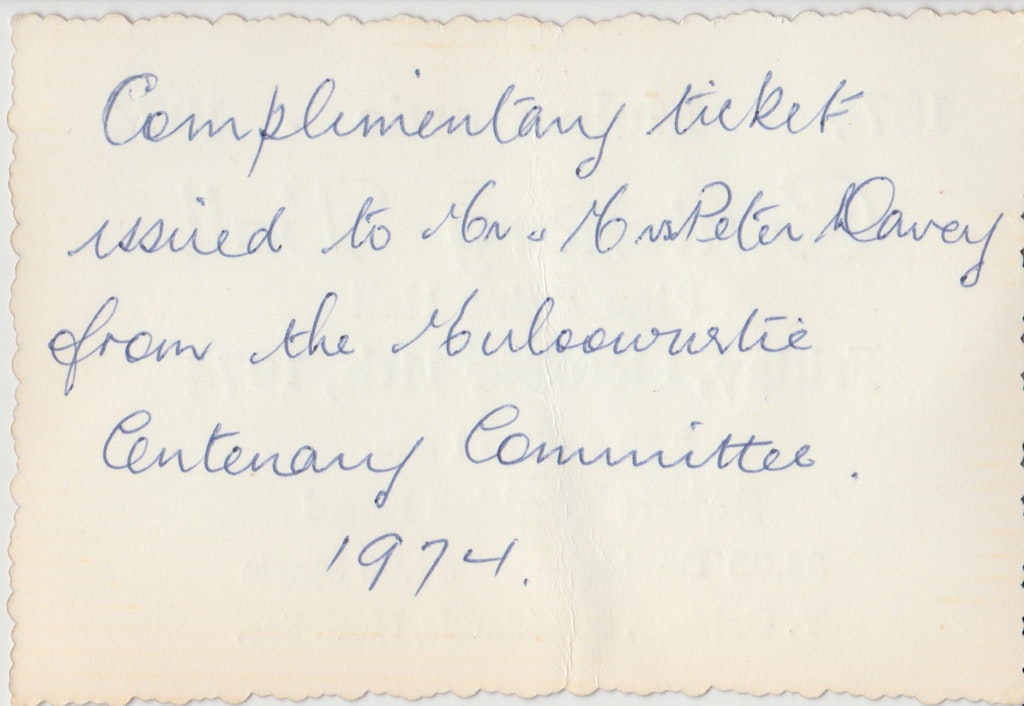 Complimentary ticket
issued to Mr. Mrs Peter Davey
from the Muloowurtie
Centenary Committee.
1974.